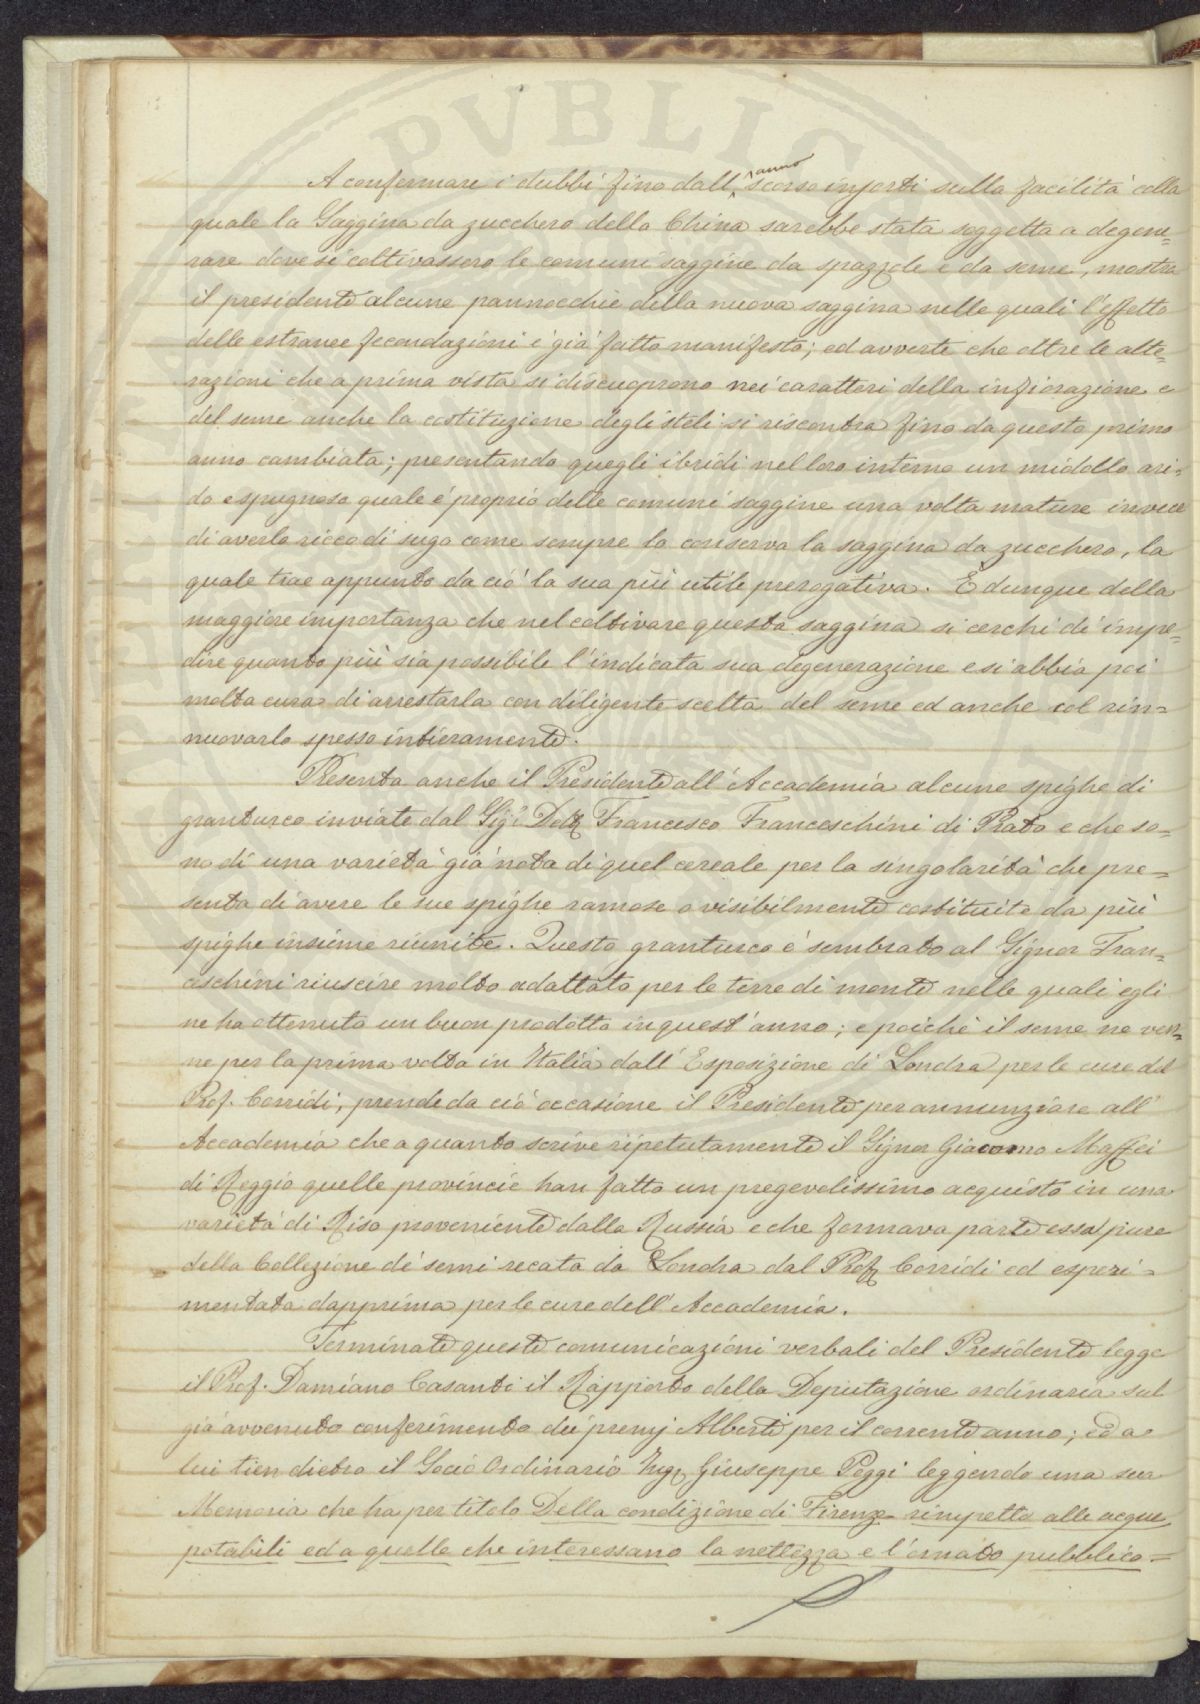 PVBLIC
A confermare i dubbi fino dall' anno scorso insorti sulla facilità colla
quale la Saggina da zucchero della China sarebbe stata soggetta a degene=
rare dove si coltivassero le comuni saggine da spazzole e da seme, mostra
il presidente alcune pannocchie della nuova saggina nelle quali l'effetto
delle estranee fecondazioni è già fatto manifesto; ed avverte che oltre le alte=
razioni che a prima vista si discuoprono nei caratteri della infiorazione e
del seme anche la costituzione degli steli si riscontra fino da questo primo
anno cambiata; presentando quegli ibridi nel loro interno un midollo ari=
do e spugnoso quale è proprio delle comuni saggine una volta mature invece
di averlo ricco di sugo come sempre lo conserva la saggina da zucchero, la
quale trae appunto da ciò la sua più utile prerogativa. È dunque della
maggiore importanza che nel coltivare questa saggina si cerchi di impe=
dire quanto più sia possibile l'indicata sua degenerazione e si abbia poi
molta cura di arrestarla con diligente scelta del seme ed anche col rin=
nuovarlo spesso intieramente.
Presenta anche il Presidente all'Accademia alcune spighe di
granturco inviate dal Sigr Dott Francesco Franceschini di Prato e che so=
no di una varietà già nota di quel cereale per la singolarità che pre=
senta di avere le sue spighe ramose o visibilmente costituite da più
spighe insieme riunite. Questo granturco è sembrato al Signor Fran=
ceschini riuscire molto adattato per le terre di monte nelle quali egli
ne ha ottenuto un buon prodotto in quest'anno; e poichè il seme ne ven=
ne per la prima volta in Italia dall'Esposizione di Londra per le cure del
Prof. Corridi, prende da ciò occasione il Presidente per annunziare all'
Accademia che a quanto scrive ripetutamente il Signor Giacomo Maffei
di Reggio quelle provincie han fatto un pregevolissimo acquisto in una
varietà di Riso proveniente dalla Russia e che formava parte essa pure
della Collezione di semi recata da Londra dal Prof. Corridi ed esperi=
mentata dapprima per le cure dell'Accademia.
Terminate queste comunicazioni verbali del Presidente legge
il Prof. Damiano Casanti il Rapporto della Deputazione ordinaria sul
già avvenuto conferimento dei premj Alberti per il corrente anno; ed a
lui tien dietro il Socio Ordinario Ing. Giuseppe Poggi leggendo una sua
Memoria che ha per titolo Della condizione di Firenze rimpetto alle acque
potabili ed a quelle che interessano la nettezza e l'ornato pubblico=